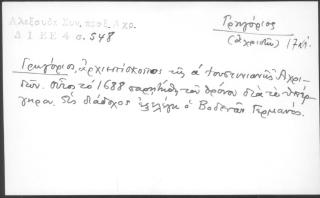 Ἀλεξούδη Συν. πεδ. Ἀχρ.
ΔΙΕΕ 4 σ. 548
Γρηγόριος
(Ἀχριδῶν) 17 αἰ.
Γρηγόριος, ἀρχιεπίσκοπος τῆς α΄ Ἰουστινιανῆς Ἀχρι-
δῶν. οὗτος τὸ 1688 παρῃτήθη τὸν θρόνον διὰ τὸ ὑπέρ-
γηρον. ὡς διάδοχος ἐξελέγη ὁ Βοδενῶν Γερμανός.